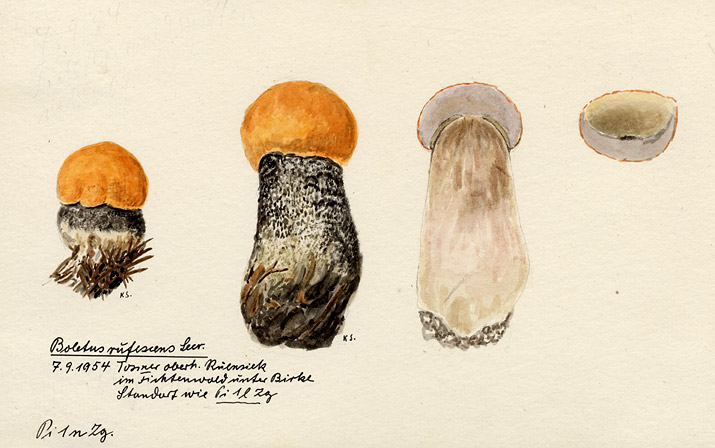 K S.
K S.
Boletus rufescens Secr.
7.9.1954 oberh.
im Fichtenwald unter Birke
Standort wie Pi 1l Zg
Pi 1n Zg.